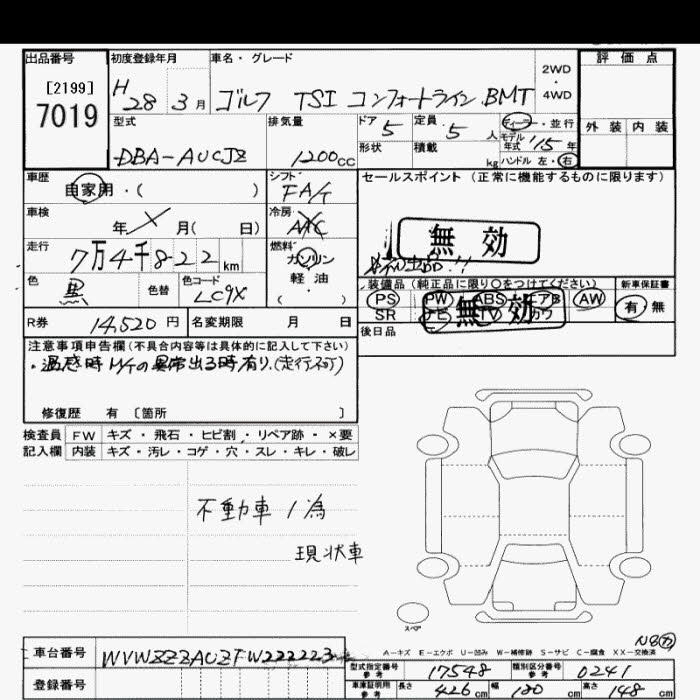 出品番号
[2199]
7019
初度登録年月
H 28 3 月
車名・グレード
ゴルフ TSI コンフォートライン BMT
2WD
・
4WD
評価点
外装 内装
型式
DBA-AUCJZ
排気量
1200 cc
ドア 5
定員 5 人
形状
積載 kg
ディーラー・並行
モデル年式 '15 年
ハンドル 左・右
車歴
自家用・( )
シフト
FA/T
車検
年 月( 日)
冷房
AAC
走行
7万4千822 km
燃料
ガソリン
軽油
( )
色
黒
色替
色コード
LC9X
セールスポイント (正常に機能するものに限ります)
無効
装備品(純正品に限り○をつけてください)
PS PW ABS エアB AW
SR ナビ TV カワ
無効
新車保証書
有・無
後日品
R券 14,520 円
名変期限 月 日
注意事項申告欄(不具合内容等は具体的に記入して下さい)
・温感時 M/Tの異常出る時有り.(走行不可)
修復歴 有 〔箇所 〕
検査員 FW キズ・飛石・ヒビ割・リペア跡・×要
記入欄 内装 キズ・汚レ・コゲ・穴・スレ・キレ・破レ
不動車ノ為
現状車
スペア
N8カ
A-キズ E-エクボ U-凹み W-補修跡 S-サビ C-腐食 XX-交換済
車台番号 WVWZZZAUZFW222223
登録番号
型式指定番号 参考 17548
類別区分番号 参考 0241
車庫証明用 参考 長さ 426 cm 幅 180 cm 高さ 148 cm